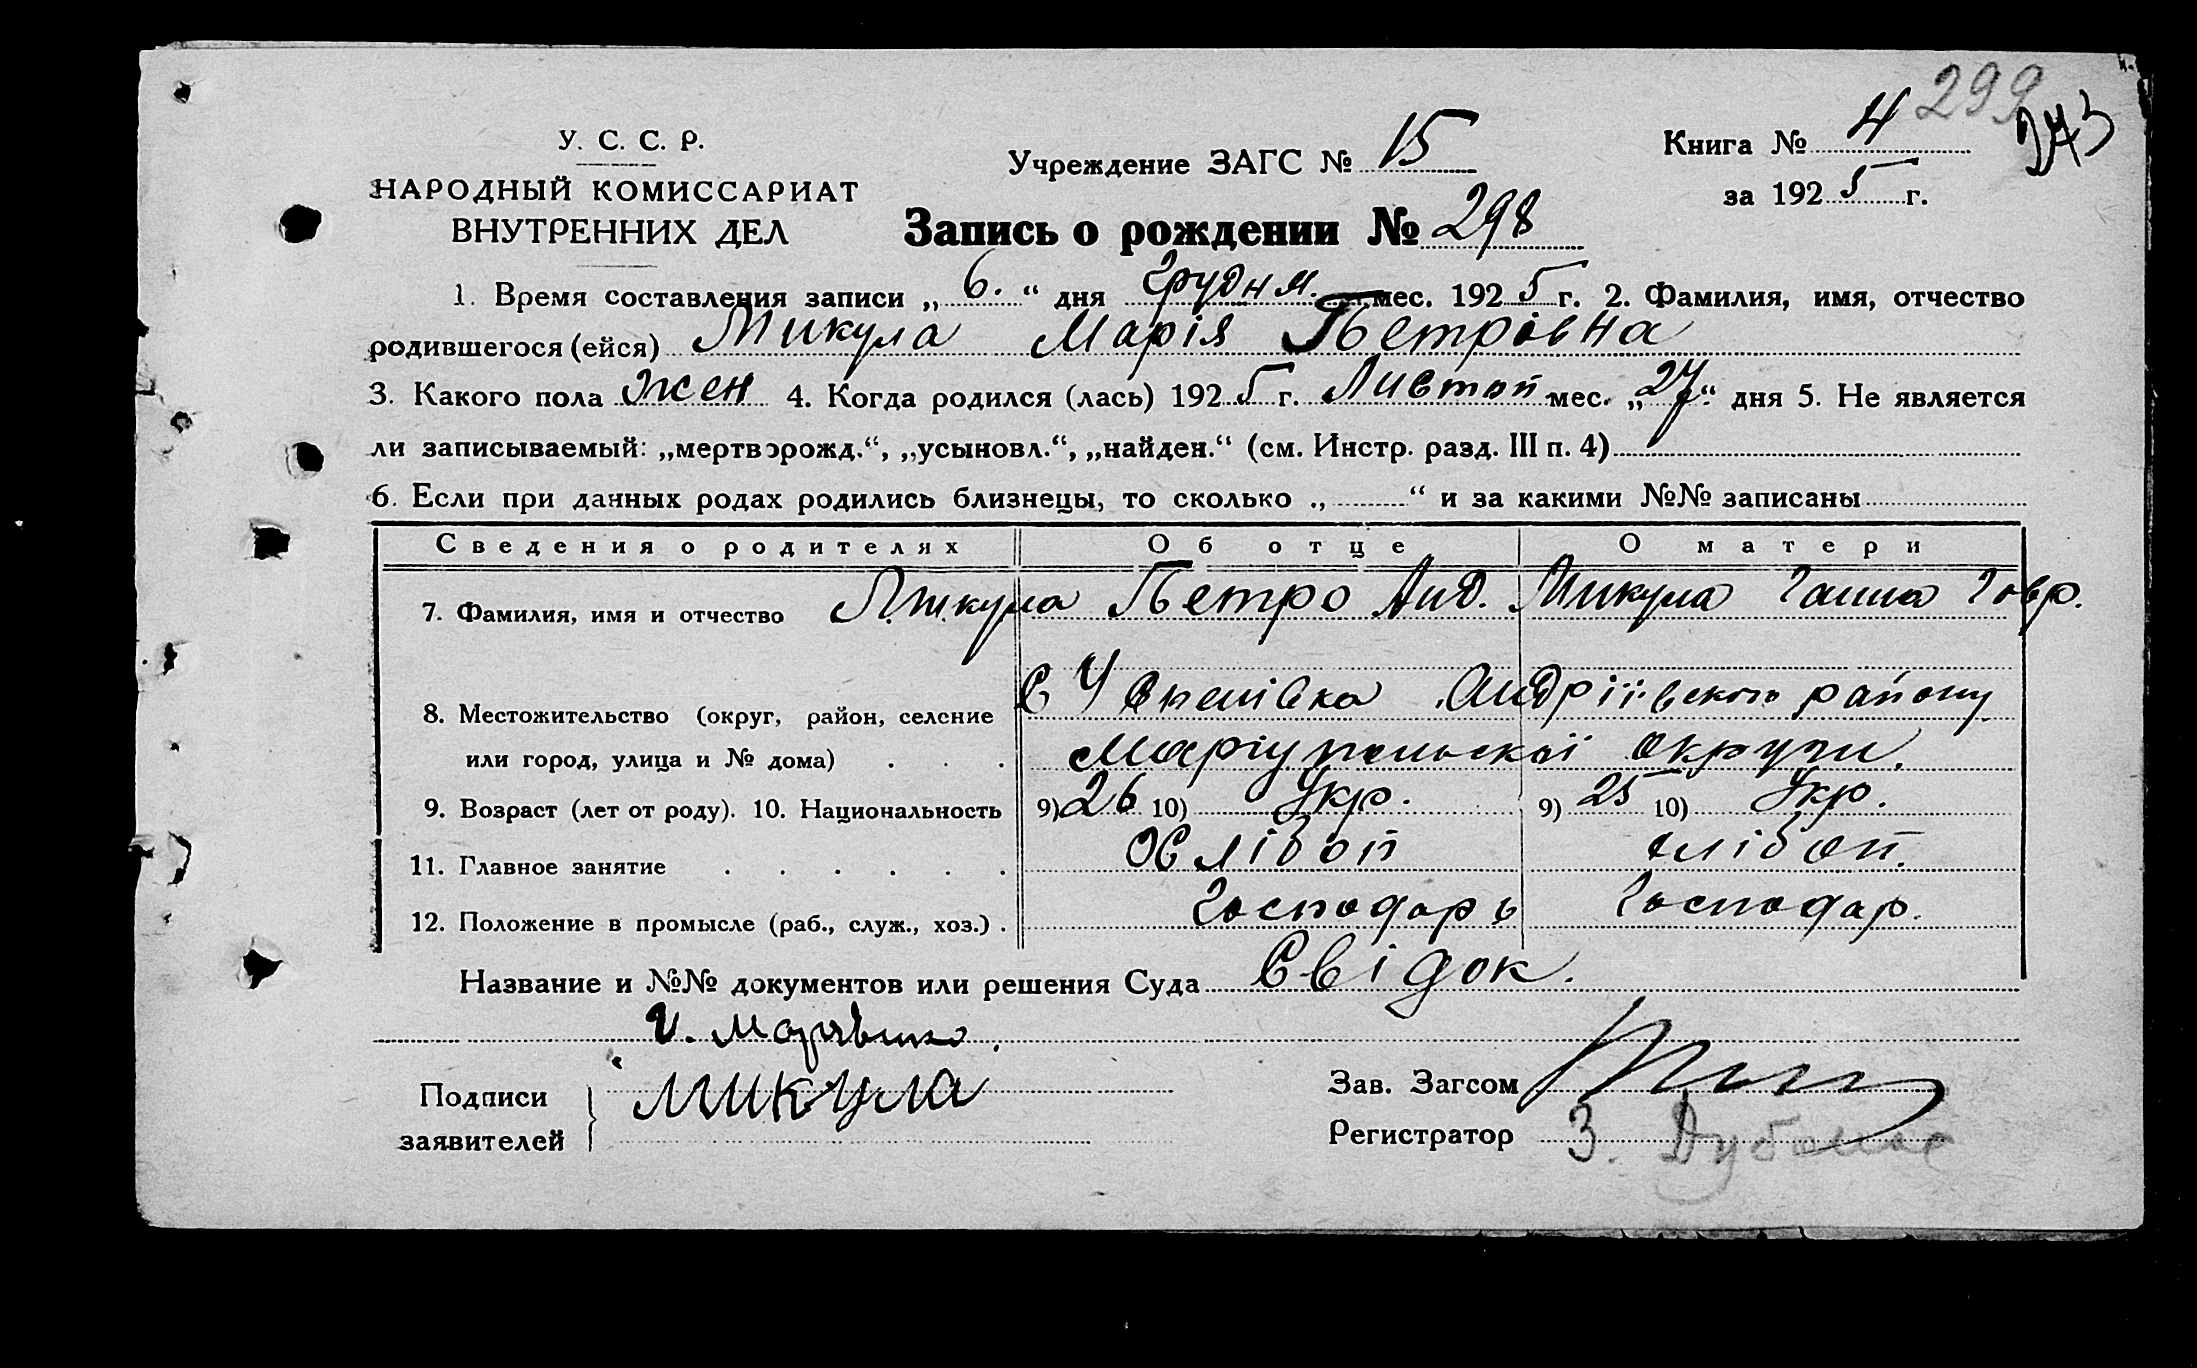 299
273
У. С. С. Р.
НАРОДНЫЙ КОМИССАРИАТ
ВНУТРЕННИХ ДЕЛ
Учреждение ЗАГС № 15
Книга № 4
за 1925 г.
Запись о рождении № 298
1. Время составления записи „ 6. “ дня Грудня мес. 1925 г. 2. Фамилия, имя, отчество
родившегося (ейся) Микула Марія Петрівна
3. Какого пола жен 4. Когда родился (лась) 1925 г. Листоп мес. „ 27 “ дня 5. Не является
ли записываемый: „мертворожд.“, „усыновл.“, „найден.“ (см. Инстр. разд. III п. 4)
6. Если при данных родах родились близнецы, то сколько „ “ и за какими №№ записаны
Сведения о родителях Об отце О матери
7. Фамилия, имя и отчество Микула Петро Анд. Микула Ганна Гавр.
8. Местожительство (округ, район, селение Андріївського району
или город, улица и № дома) . . . Маріупольскої округи.
9. Возраст (лет от роду). 10. Национальность 9) 26 10) Укр. 9) 25 10) Укр.
11. Главное занятие . . . . . . хлібоп хлібоп.
12. Положение в промысле (раб., служ., хоз.) . Господарь Господар.
Название и №№ документов или решения Суда Свідок.
Подписи
заявителей
Микула
Зав. Загсом
Регистратор З.